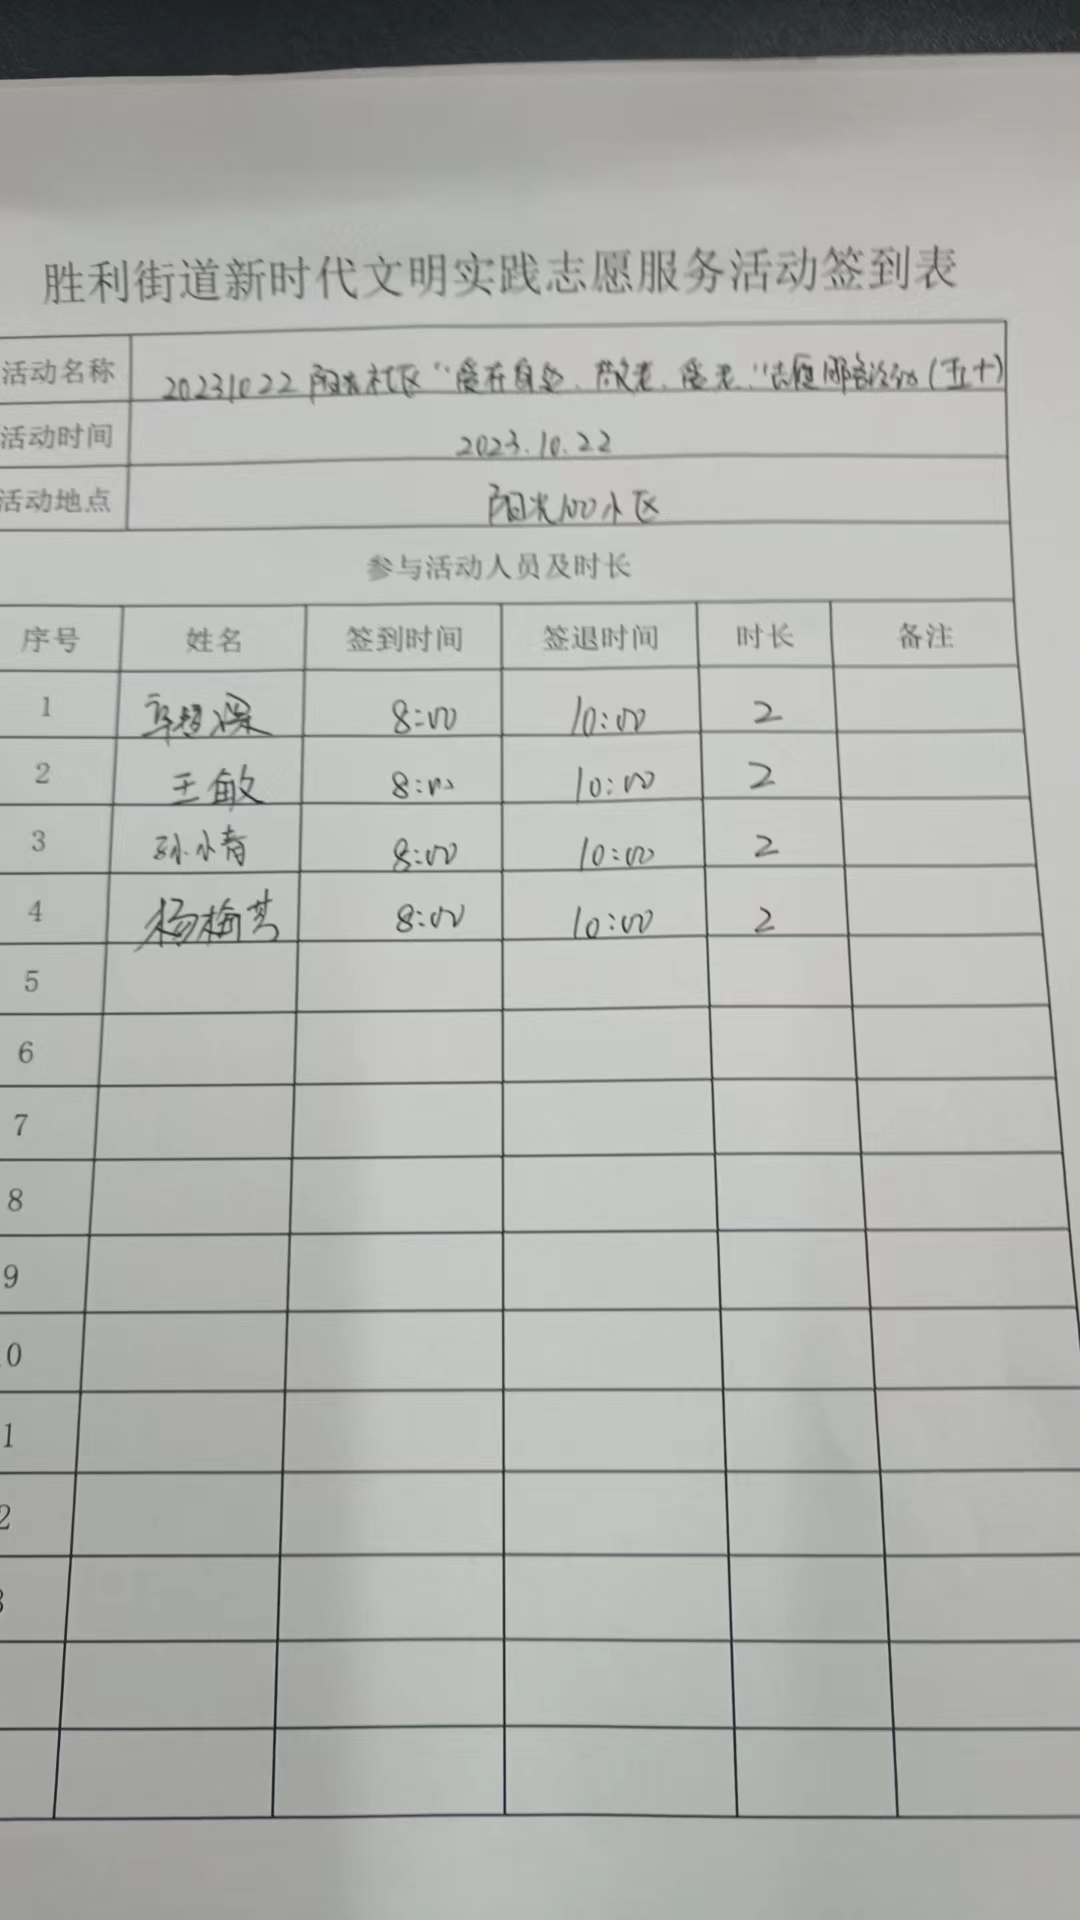 胜利街道新时代文明实践志愿服务活动签到表
活动名称 20231022阳光社区“爱在身边、敬老、爱老”志愿服务活动(五十)
活动时间 2023.10.22
活动地点 阳光100小区
参与活动人员及时长
序号 姓名 签到时间 签退时间 时长 备注
1 8:00 10:00 2
2 王敏 8:00 10:00 2
3 孙小青 8:00 10:00 2
4 杨梅芳 8:00 10:00 2
5
6
7
8
9
0
1
2
3